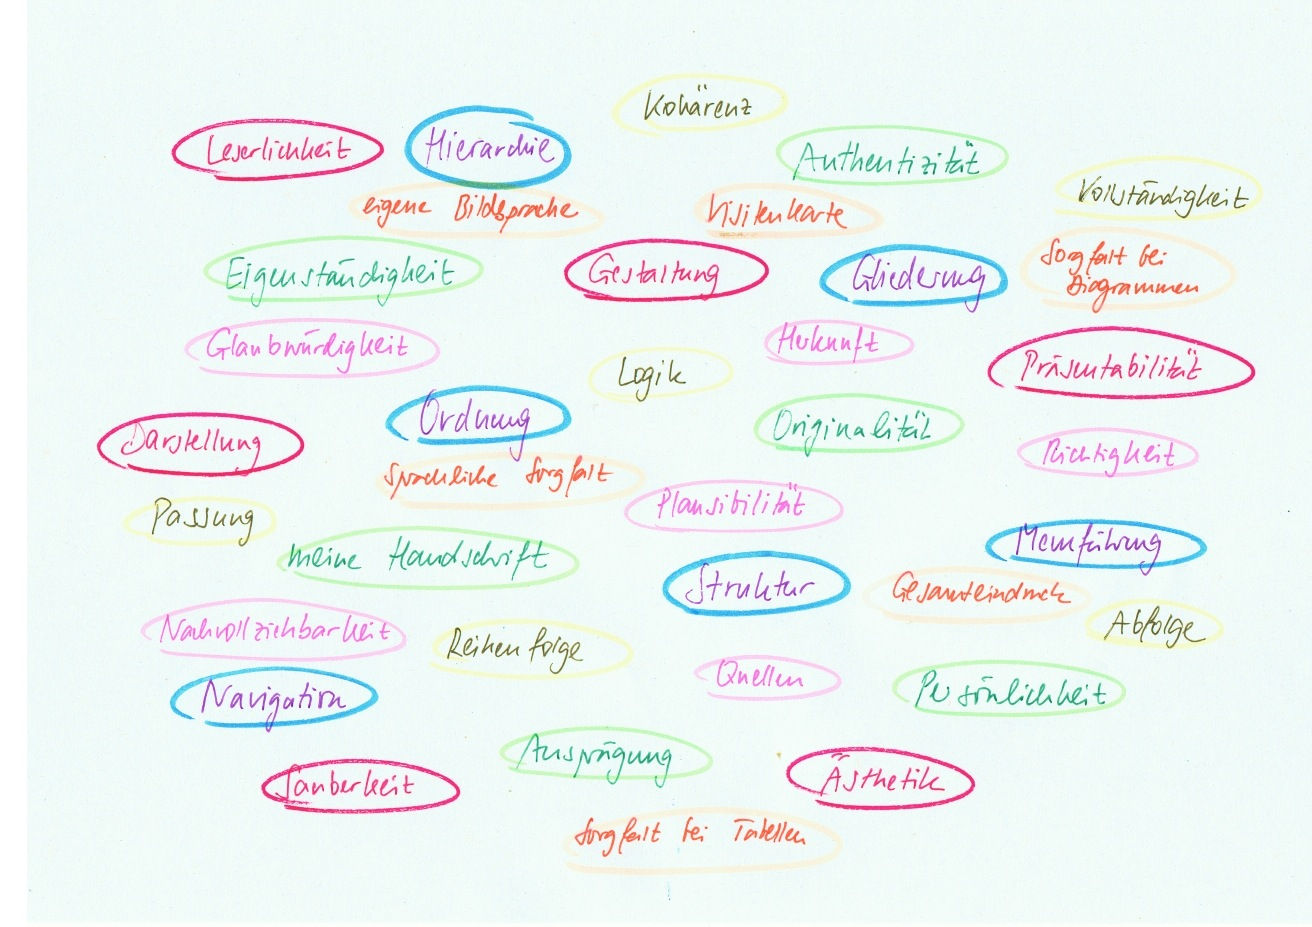 Kohärenz
Leserlichkeit
Hierarchie
Authentizität
Vollständigkeit
eigene Bildsprache
Visitenkarte
Eigenständigkeit
Gestaltung
Gliederung
Sorgfalt bei
Diagrammen
Glaubwürdigkeit
Herkunft
Logik
Präsentabilität
Ordnung
Originalität
Darstellung
Richtigkeit
sprachliche Sorgfalt
Plausibilität
Passung
meine Handschrift
Menuführung
Struktur
Gesamteindruck
Abfolge
Nachvollziehbarkeit
Reihenfolge
Quellen
Navigation
Persönlichkeit
Ausprägung
Sauberkeit
Ästhetik
Sorgfalt bei Tabellen